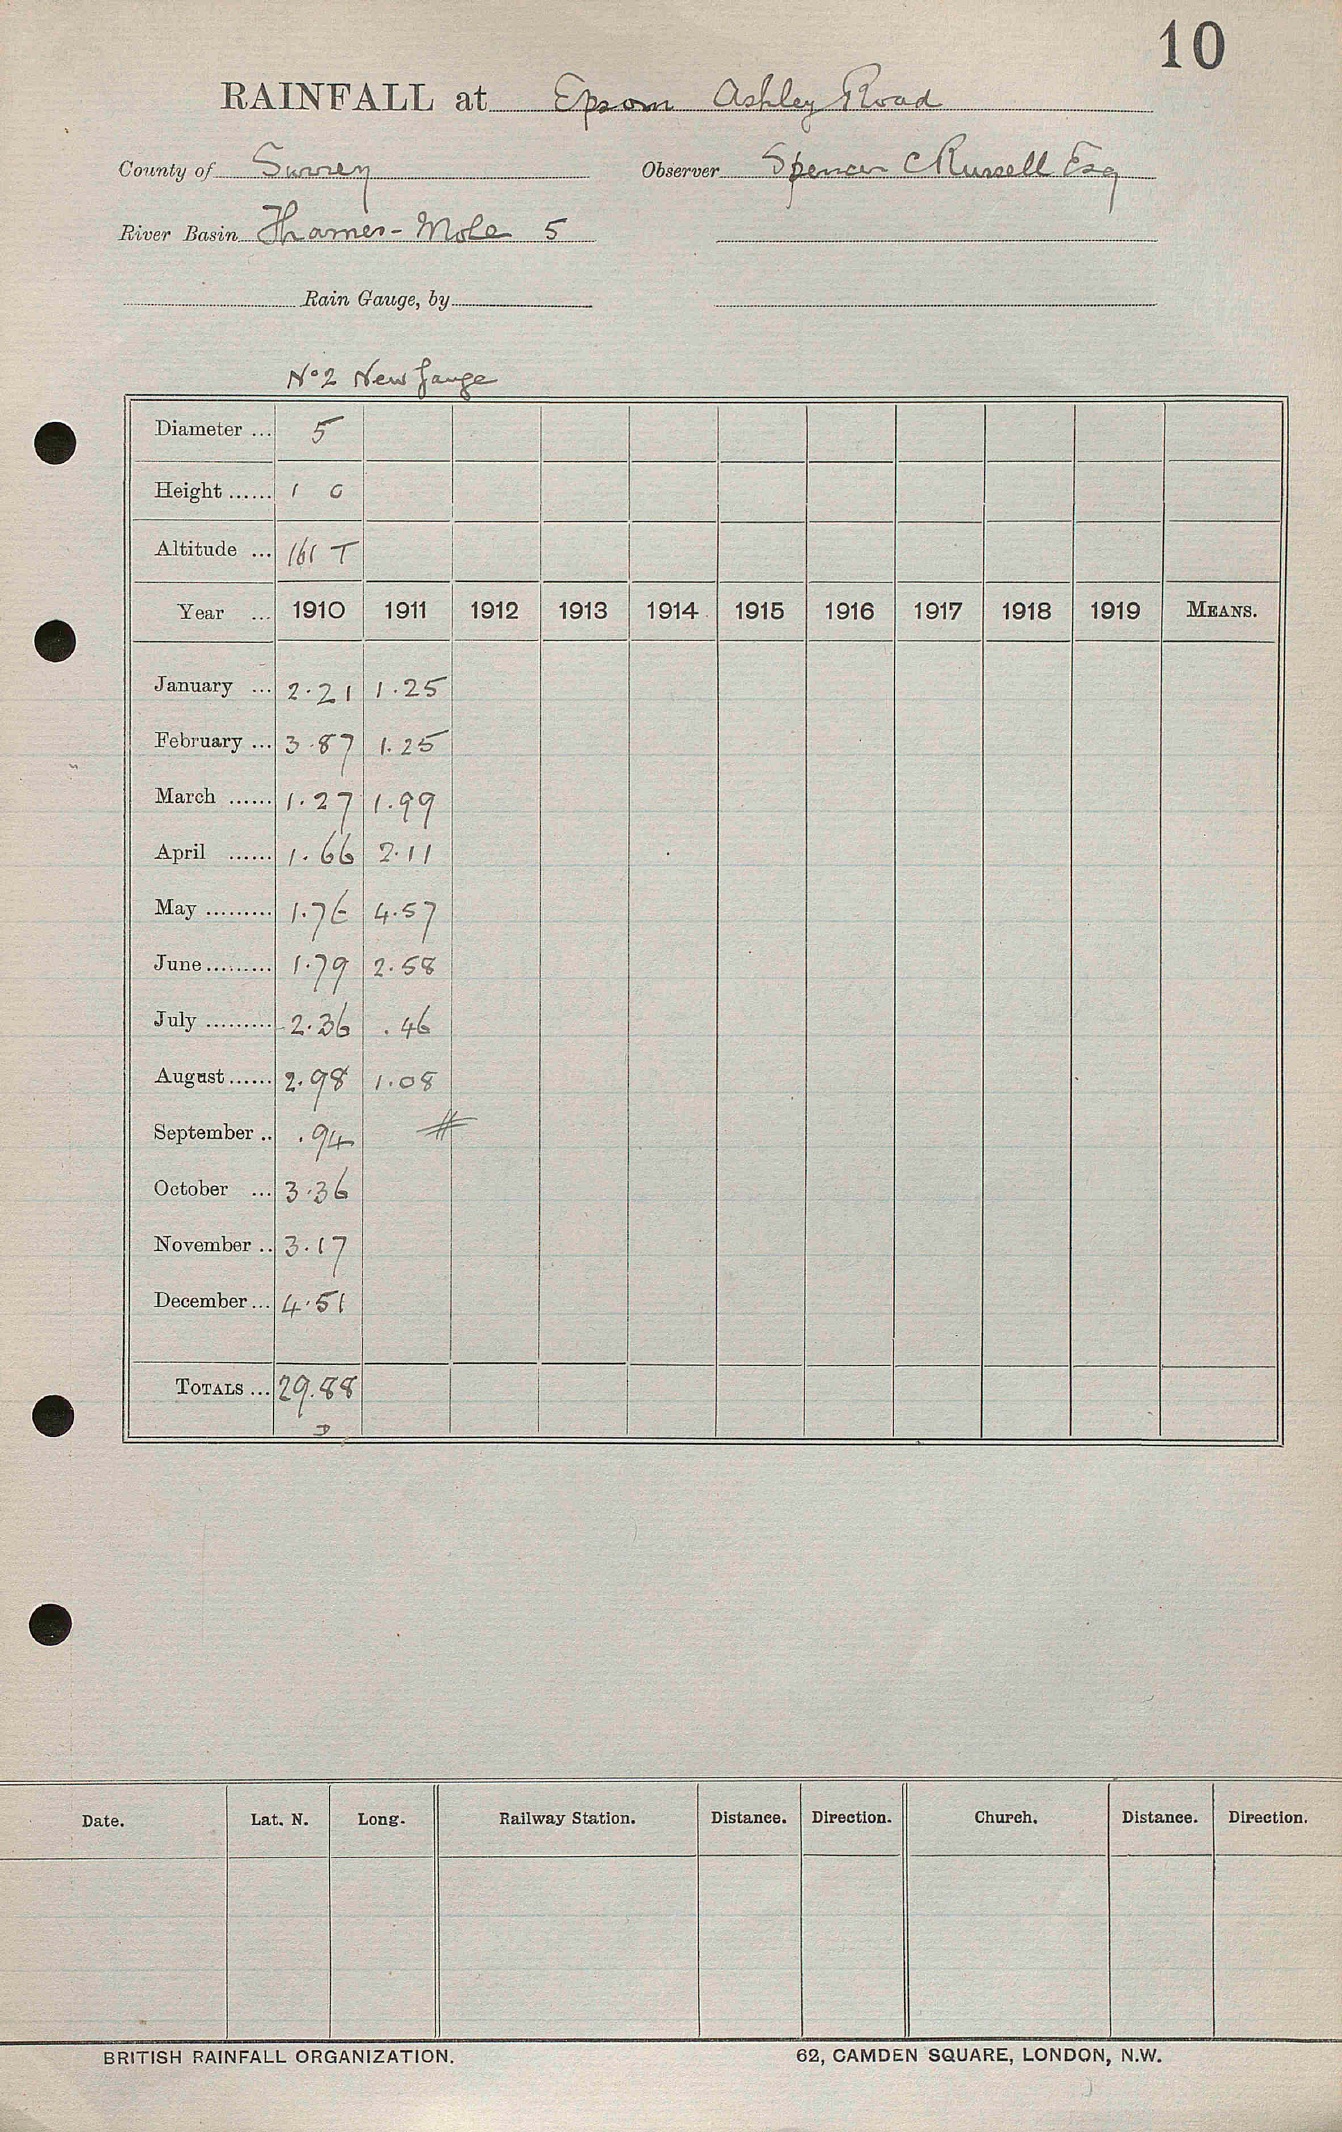 10
RAINFALL at Epsom Ashley Road
County of Surrey Observer Spencer C Russell Esq
River Basin Thames - Mole 5
Rain Gauge, by
No 2 New Gauge
Diameter ... 5
Height ...... 1 0
Altitude ... 161 T
Year ... 1910 1911 1912 1913 1914 1915 1916 1917 1918 1919 MEANS.
January ... 2.21 1.25
February ... 3.87 1.25
March ...... 1.27 1.99
April ...... 1.66 2.11
May ......... 1.76 4.57
June ......... 1.79 2.58
July ......... 2.36 .46
August ...... 2.98 1.08
September .. .94 #
October ... 3.36
November .. 3.17
December ... 4.51
TOTALS ... 29.88
D
Date. Lat. N. Long. Railway Station. Distance. Direction. Church. Distance. Direction.
BRITISH RAINFALL ORGANIZATION. 62, CAMDEN SQUARE, LONDON, N.W.